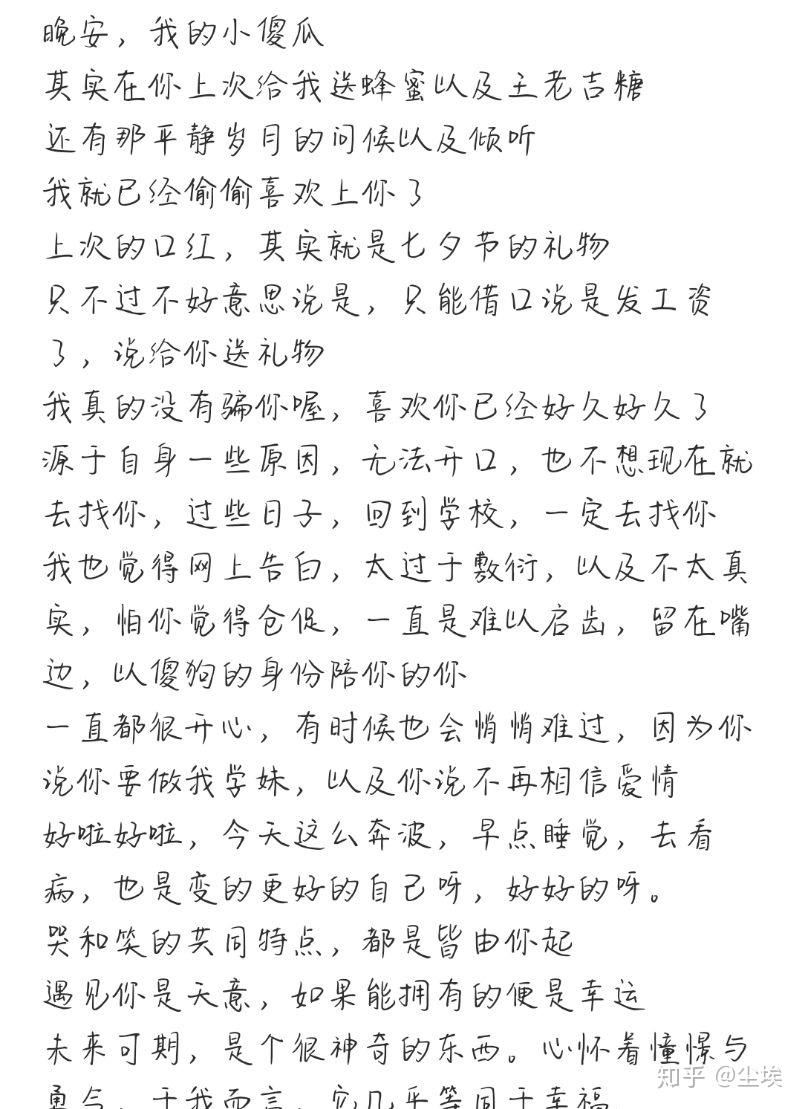 晚安，我的小傻瓜
其实在你上次给我送蜂蜜以及王老吉糖
还有那平静岁月的问候以及倾听
我就已经偷偷喜欢上你了
上次的口红，其实就是七夕节的礼物
只不过不好意思说是，只能借口说是发工资
了，说给你送礼物
我真的没有骗你喔，喜欢你已经好久好久了
源于自身一些原因，无法开口，也不想现在就
去找你，过些日子，回到学校，一定去找你
我也觉得网上告白，太过于敷衍，以及不太真
实，怕你觉得仓促，一直是难以启齿，留在嘴
边，以傻狗的身份陪你的你
一直都很开心，有时候也会悄悄难过，因为你
说你要做我学妹，以及你说不再相信爱情
好啦好啦，今天这么奔波，早点睡觉，去看
病，也是变的更好的自己呀，好好的呀。
哭和笑的共同特点，都是皆由你起
遇见你是天意，如果能拥有的便是幸运
未来可期，是个很神奇的东西。心怀着憧憬与
勇气，于我而言，它几乎等同于幸福
知乎 @尘埃